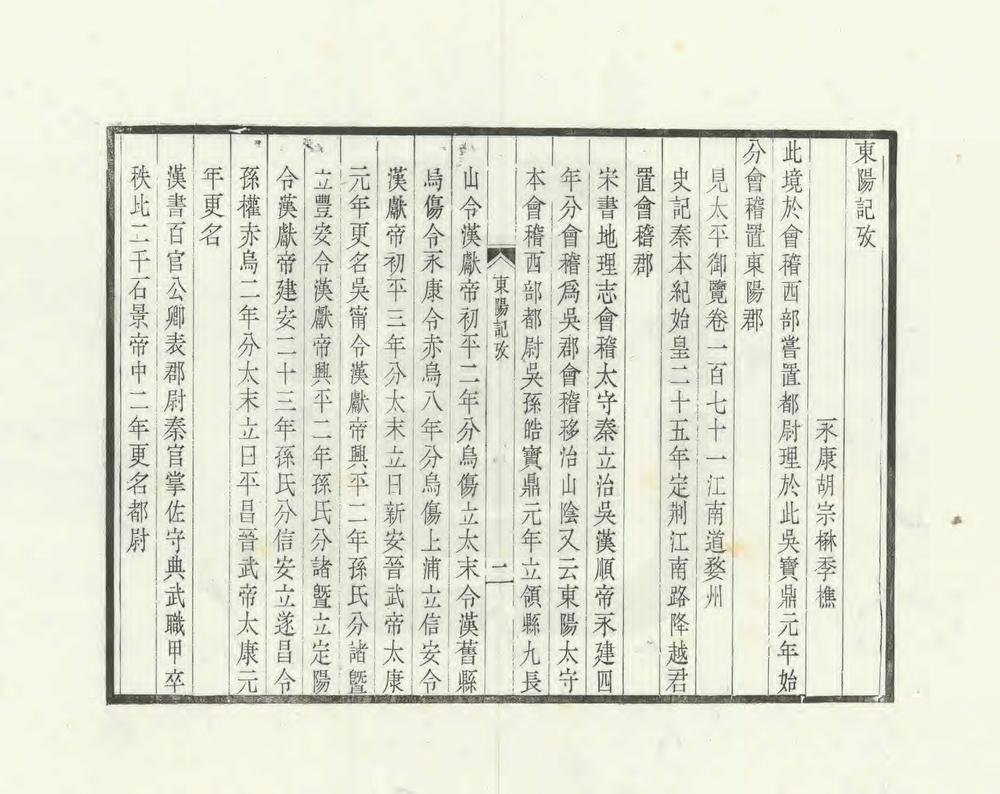 東陽記攷
永康胡宗楙季樵
此境於會稽西部嘗置都尉理於此吳寶鼎元年始
分會稽置東陽郡
見太平御覽卷一百七十一江南道婺州
史記秦本紀始皇二十五年定荆江南路降越君
置會稽郡
宋書地理志會稽太守秦立治吳漢順帝永建四
年分會稽爲吳郡會稽移治山陰又云東陽太守
本會稽西部都尉吳孫皓寶鼎元年立領縣九長
東陽記攷
二
山令漢獻帝初平二年分烏傷立太末令漢舊縣
烏傷令永康令赤烏八年分烏傷上浦立信安令
漢獻帝初平三年分太末立曰新安晉武帝太康
元年更名吳甯令漢獻帝興平二年孫氏分諸曁
立豐安令漢獻帝興平二年孫氏分諸曁立定陽
令漢獻帝建安二十三年孫氏分信安立遂昌令
孫權赤烏二年分太末立曰平昌晉武帝太康元
年更名
漢書百官公卿表郡尉秦官掌佐守典武職甲卒
秩比二千石景帝中二年更名都尉